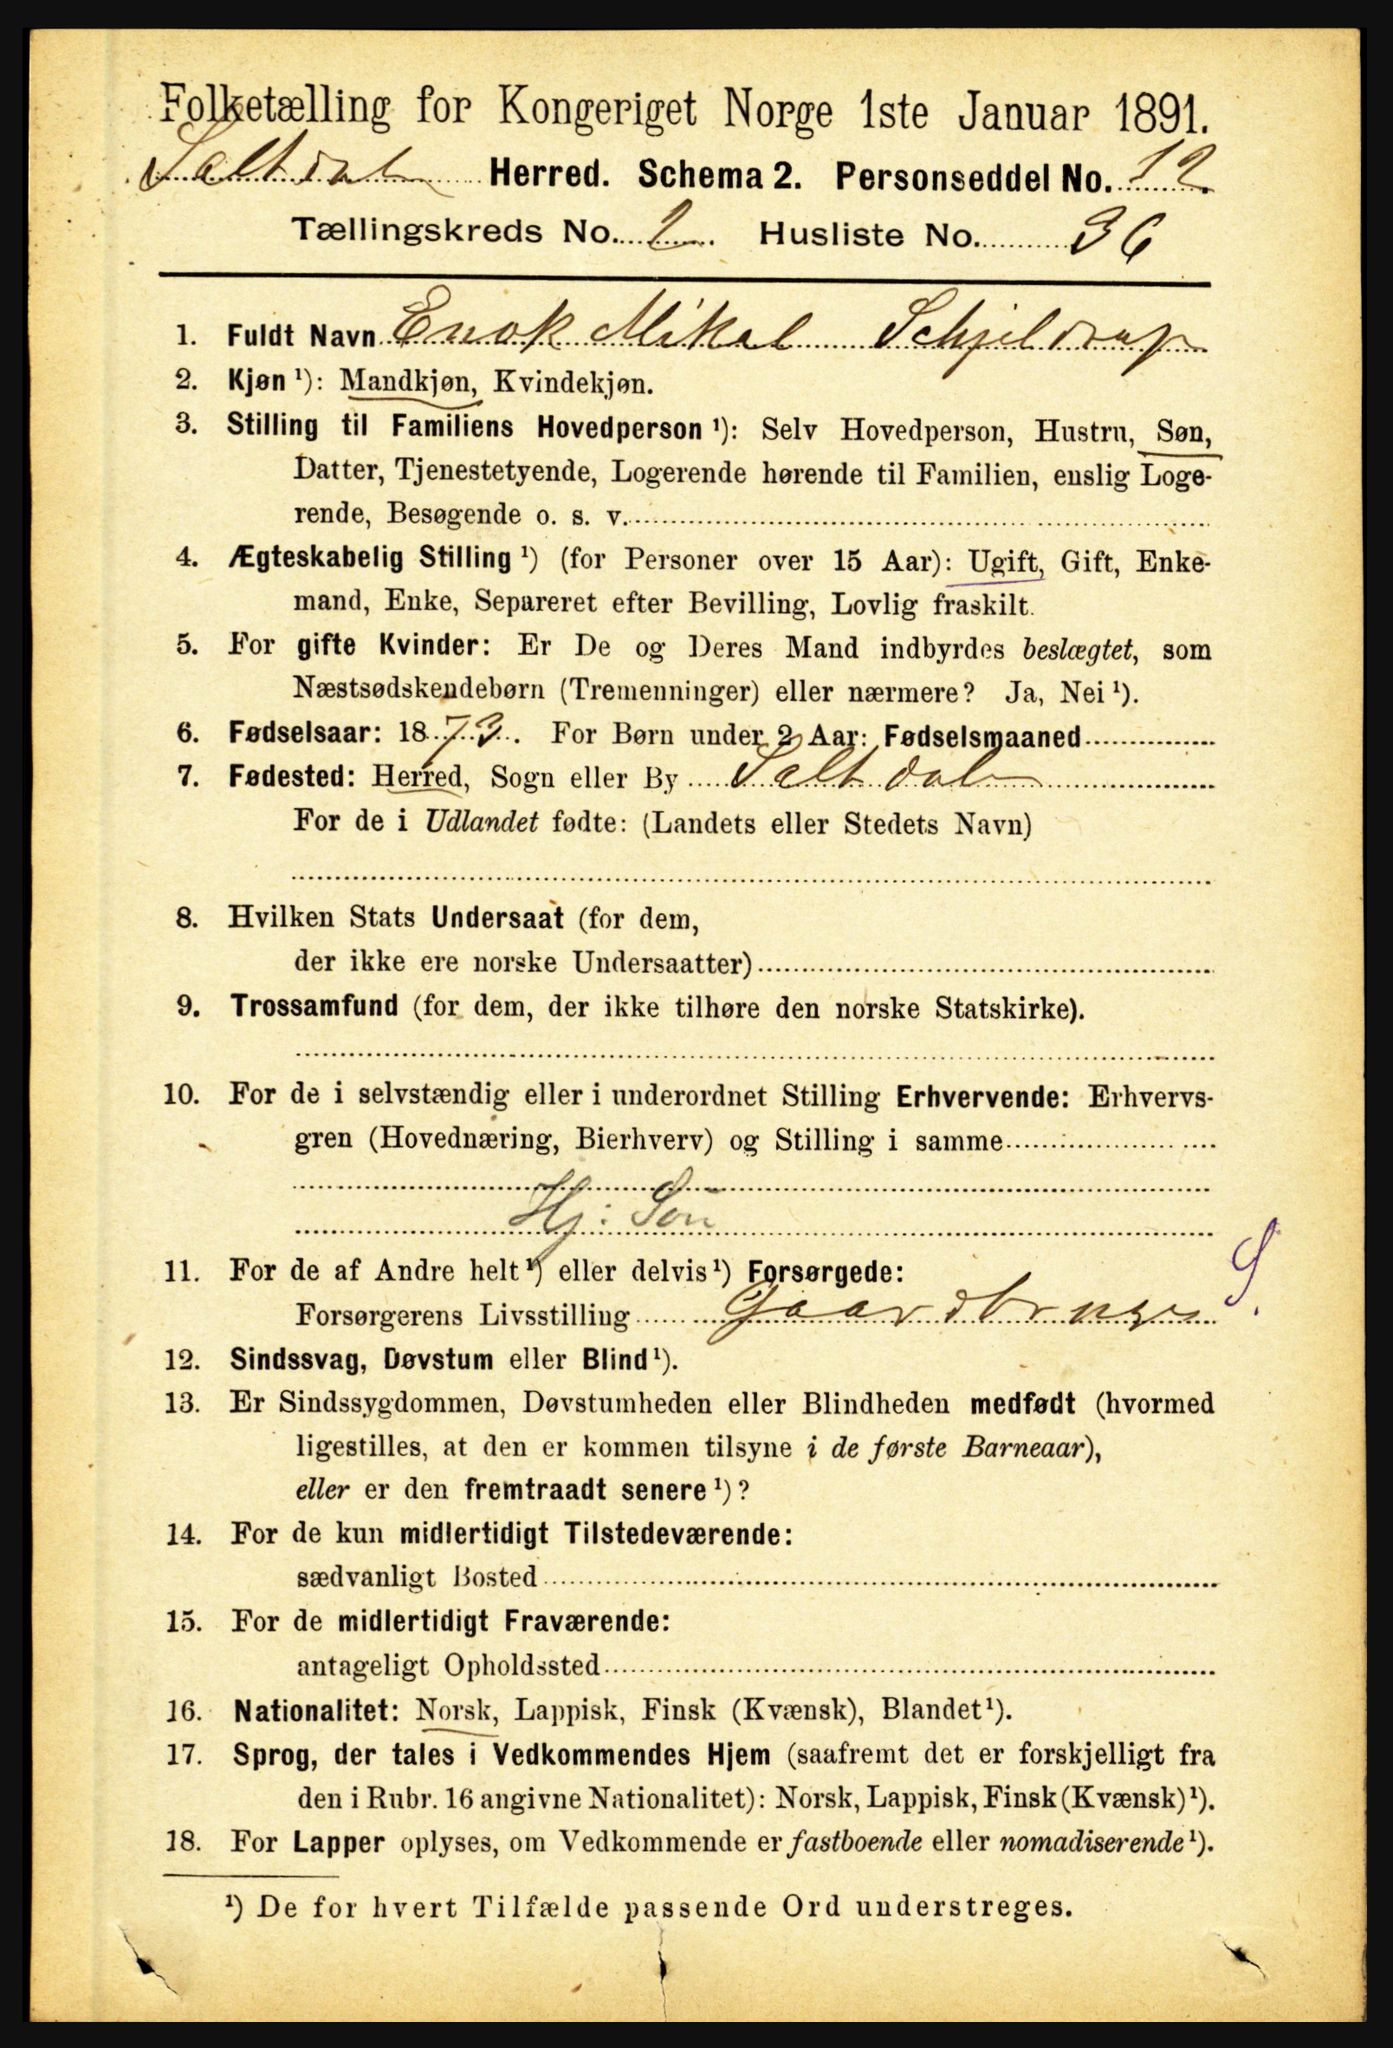 Folketælling for Kongeriget Norge 1ste Januar 1891.
Saltdal Herred. Schema 2. Personseddel No. 12.
Tællingskreds No. 2. Husliste No. 36
1. Fuldt Navn Enok Mikal Schjeldrup
2. Kjøn ¹): Mandkjøn, Kvindekjøn.
3. Stilling til Familiens Hovedperson ¹): Selv Hovedperson, Hustru, Søn,
Datter, Tjenestetyende, Logerende hørende til Familien, enslig Loge-
rende, Besøgende o. s. v.
4. Ægteskabelig Stilling ¹) (for Personer over 15 Aar): Ugift, Gift, Enke-
mand, Enke, Separeret efter Bevilling, Lovlig fraskilt.
5. For gifte Kvinder: Er De og Deres Mand indbyrdes beslægtet, som
Næstsødskendebørn (Tremenninger) eller nærmere? Ja, Nei ¹).
6. Fødselsaar: 1873. For Børn under 2 Aar: Fødselsmaaned
7. Fødested: Herred, Sogn eller By Saltdal
For de i Udlandet fødte: (Landets eller Stedets Navn)
8. Hvilken Stats Undersaat (for dem,
der ikke ere norske Undersaatter)
9. Trossamfund (for dem, der ikke tilhøre den norske Statskirke).
10. For de i selvstændig eller i underordnet Stilling Erhvervende: Erhvervs-
gren (Hovednæring, Bierhverv) og Stilling i samme
Hj: Søn
11. For de af Andre helt ¹) eller delvis ¹) Forsørgede:
Forsørgerens Livsstilling Gaardbruger S.
12. Sindssvag, Døvstum eller Blind ¹).
13. Er Sindssygdommen, Døvstumheden eller Blindheden medfødt (hvormed
ligestilles, at den er kommen tilsyne i de første Barneaar),
eller er den fremtraadt senere ¹)?
14. For de kun midlertidigt Tilstedeværende:
sædvanligt Bosted
15. For de midlertidigt Fraværende:
antageligt Opholdssted
16. Nationalitet: Norsk, Lappisk, Finsk (Kvænsk), Blandet ¹).
17. Sprog, der tales i Vedkommendes Hjem (saafremt det er forskjelligt fra
den i Rubr. 16 angivne Nationalitet): Norsk, Lappisk, Finsk (Kvænsk) ¹).
18. For Lapper oplyses, om Vedkommende er fastboende eller nomadiserende ¹).
¹) De for hvert Tilfælde passende Ord understreges.